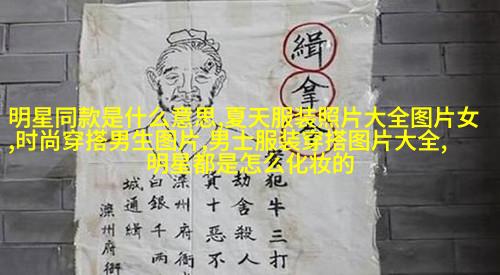 明星同款是什么意思,夏天服装照片大全图片女
,时尚穿搭男生图片,男士服装穿搭图片大全,
明星都是怎么化妆的
緝拿
犯牛三打
劫舍殺人
十惡不
滦州府衙
白銀千两
城通緝
滦州府衙